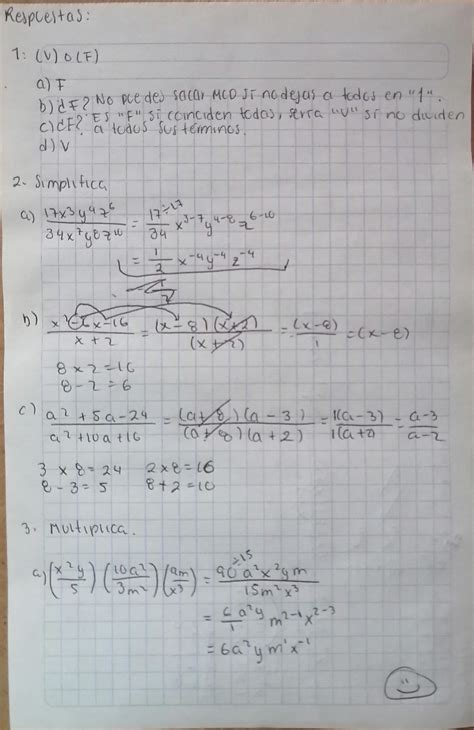 Respuestas:
1: (V) o (F)
a) F
b) ¿F? No puedes sacar MCD si no dejas a todos en "1".
c) ¿F? Es "F" si coinciden todas, sería "V" si no dividen
a todos sus términos.
d) V
2. Simplifica
a) 17x³y⁴z⁶/34x⁷y⁸z¹⁰ = 17÷17/34 x³⁻⁷y⁴⁻⁸z⁶⁻¹⁰
= 1/2 x⁻⁴y⁻⁴z⁻⁴
b) x²-6x-16/x+2 = (x-8)(x+2)/(x+2) = (x-8)/1 = (x-8)
8 x 2 = 16
8 - 2 = 6
c) a²+5a-24/a²+10a+16 = (a+8)(a-3)/(a+8)(a+2) = 1(a-3)/1(a+2) = a-3/a-2
3 x 8 = 24 2 x 8 = 16
8 - 3 = 5 8 + 2 = 10
3. Multiplica.
a) (x²y/5)(10a²/3m²)(9m/x³) = 90÷15a²x²ym/15m²x³
= 6/1 a²y m²⁻¹x²⁻³
= 6a²ym¹x⁻¹